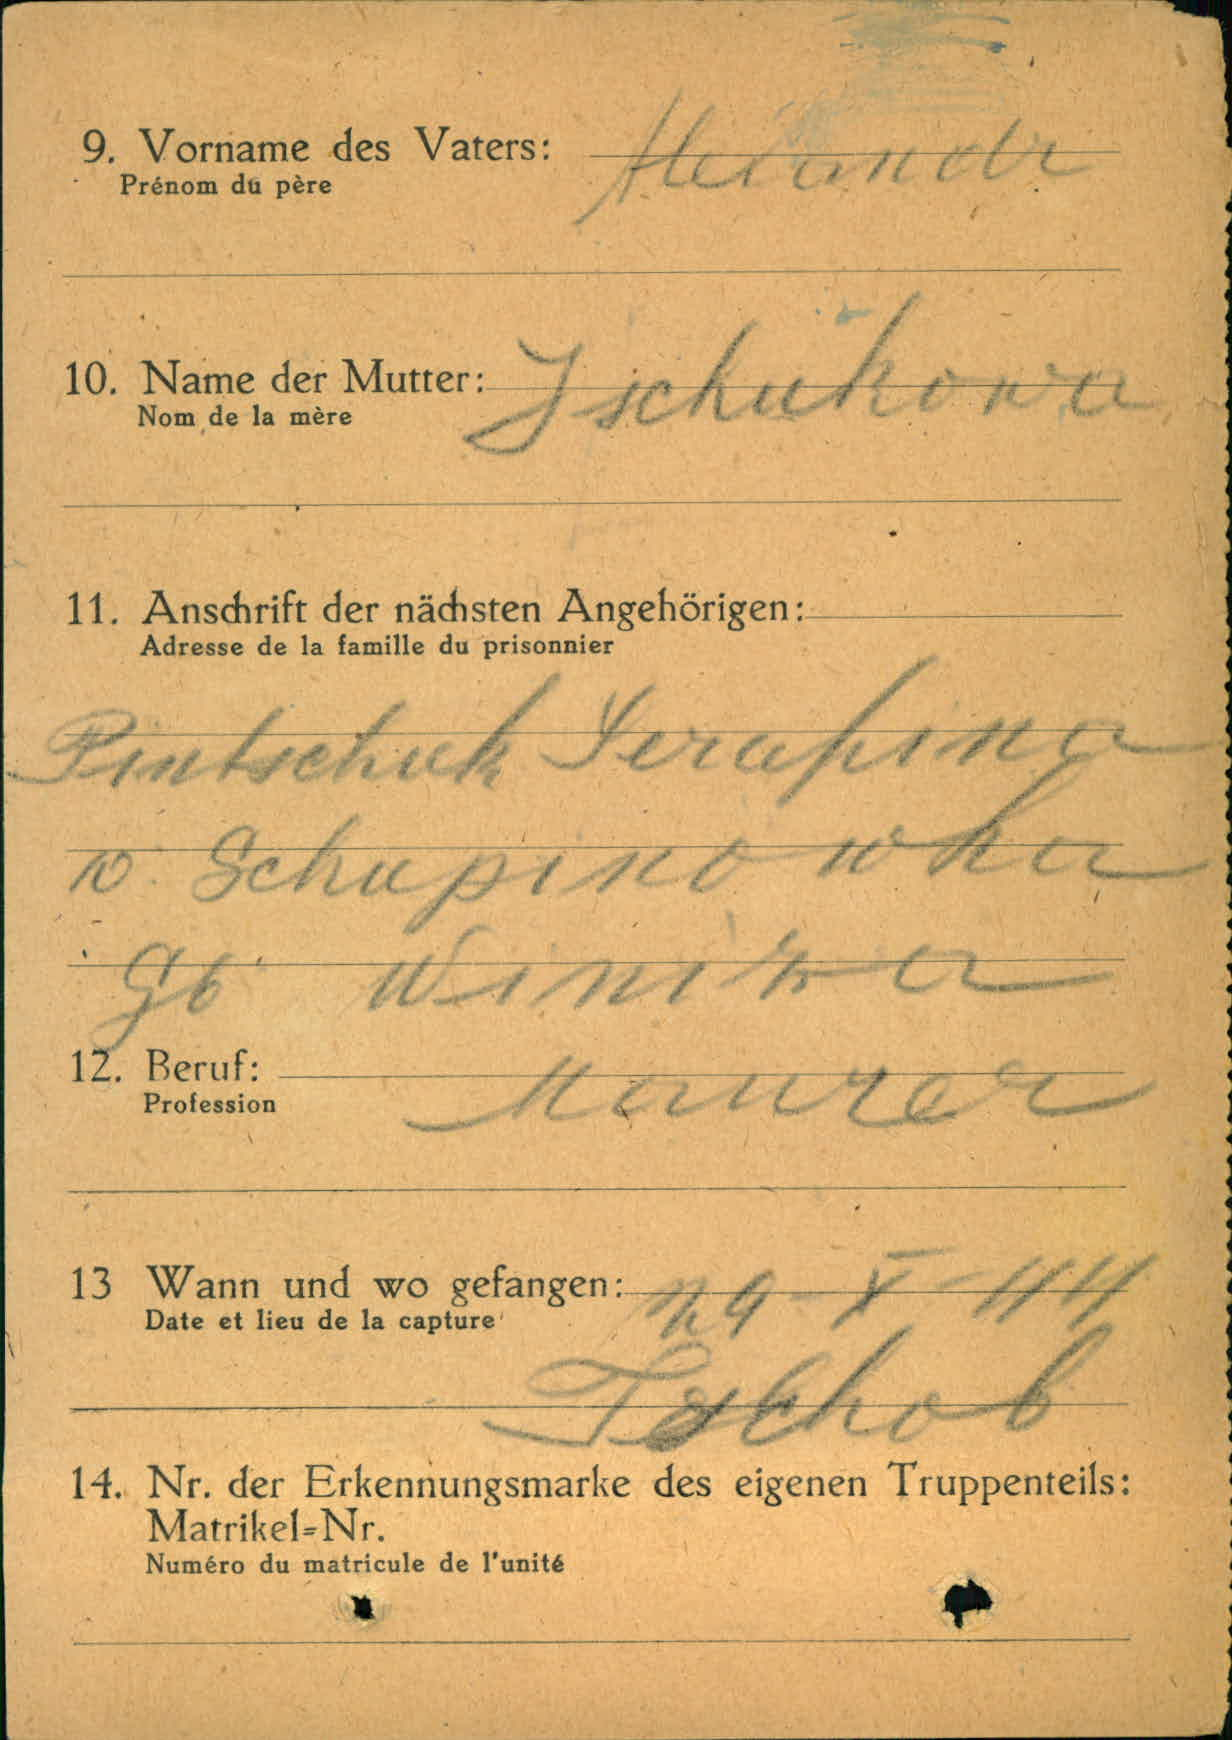 9. Vorname des Vaters: Alexandr
Prénom du père
10. Name der Mutter: Ischukowa
Nom de la mère
11. Anschrift der nächsten Angehörigen:
Adresse de la famille du prisonnier
Pintschuk Serafina
w. Schupinowka
Gb Winiza
12. Beruf: Maurer
Profession
13 Wann und wo gefangen:
Date et lieu de la capture
14. Nr. der Erkennungsmarke des eigenen Truppenteils:
Matrikel=Nr.
Numéro du matricule de l'unité